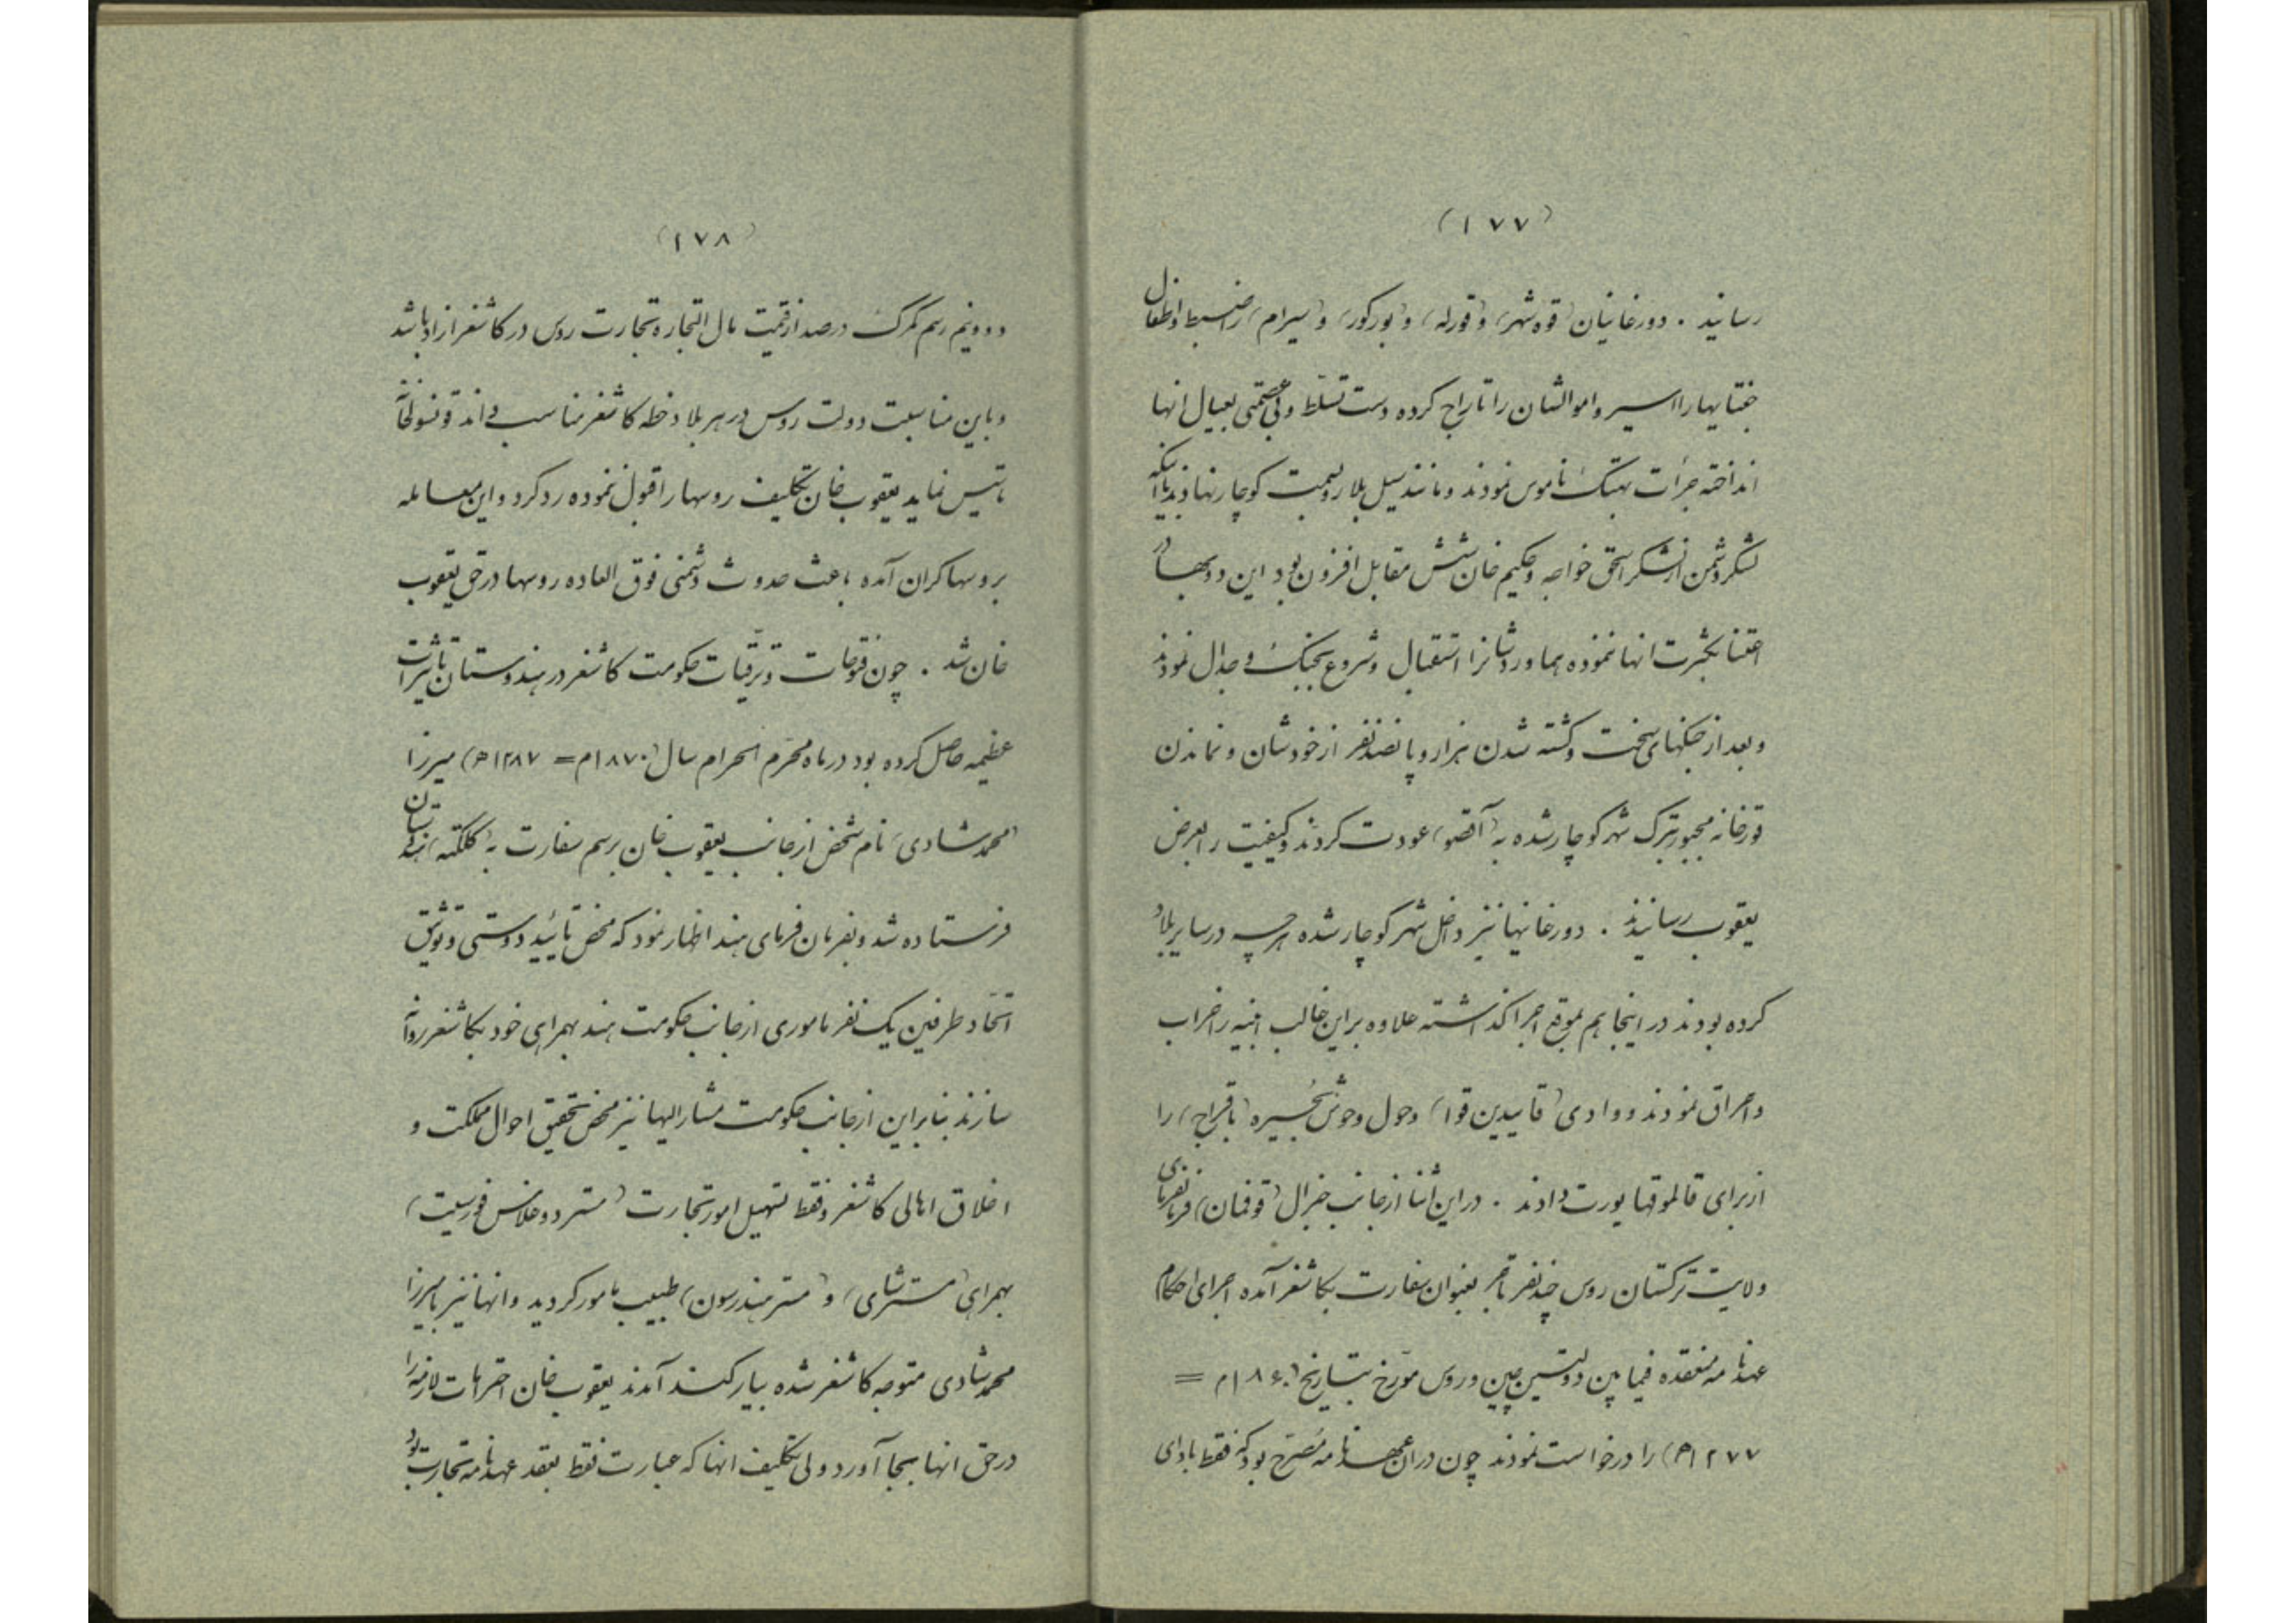 (۱۷۷)
رسانید . دورغانیان (قوه شهر) و (قورله) و (بورکور) و (سیرام) را ضبط و اطفال
ختایها را اسیر و اموالشان را تاراج کرده دست تسلّط و بی عصمتی بعیال انها
انداخته جرأت بهتک ناموس نمودند و مانند سیل بلا رو بسمت کوچار نهادند با اینکه
لشکر دشمن از لشکر اسحق خواجه و حکیم خان شش مقابل افزون بود این دو بهادر
اعتنا بکثرت انها ننموده هماوردشانرا استقبال و شروع بجنک و جدال نمودند
و بعد از جنکهای سخت و کشته شدن هزار و پانصد نفر از خودشان و نماندن
قورخانه مجبور بترک شهر کوچار شده به (آقصو) عودت کردند و کیفیت را بعرض
یعقوب رسانیدند . دورغانیها نیز داخل شهر کوچار شده هرچه در سایر بلاد
کرده بودند در اینجا هم بموقع اجرا کذاشته علاوه بر این غالب ابنیه را خراب
و احراق نمودند و وادی (قایدین قوا) و حول و حوش بُحیره (باقراج) را
از برای قالموقها یورت دادند . در این اثنا از جانب جنرال (قوفمان) فرمانفرمای
ولایت ترکستان روس چند نفر تاجر بعنوان سفارت بکاشغر آمده اجرای احکام
عهدنامه منعقده فیما بین دولتین چین و روس مورّخ بتاریخ (۱۸۶۰م =
۱۲۷۷ﻫ) را درخواست نمودند چون در ان عهدنامه مُصَرّح بود که فقط بادای
(۱۷۸)
دو ونیم رسم کمرک درصد از قیمت مال التجاره تجارت روس در کاشغر ازاد باشد
و باین مناسبت دولت روس در هر بلاد خطه کاشغر مناسب داند قونسولخانه
تاسیس نماید یعقوب خان تکلیف روسها را قبول ننموده رد کرد و این معامله
بروسها کران آمده باعث حدوث دشمنی فوق العاده روسها در حق یعقوب
خان شد . چون فتوحات و ترقیات حکومت کاشغر در هندوستان تاثیرات
عظیمه حاصل کرده بود در ماه محرّم الحرام سال (۱۸۷۰م = ۱۲۸۷ﻫ) میرزا
(محمد شادی) نام شخص از جانب یعقوب خان برسم سفارت به (کلکته) هندوستان
فرستاده شد و بفرمان فرمای هند اظهار نمود که محض تأیید دوستی و توثیق
اتّحاد طرفین یک نفر ماموری از جانب حکومت هند بهمرای خود بکاشغر روانه
سازند بنابراین از جانب حکومت مشار الیها نیز محض تحقیق احوال مملکت و
اخلاق اهالی کاشغر و فقط تسهیل امور تجارت (مستر دوغلاس فورسیت)
بهمرای (مستر شای) و (مستر هندرسون) طبیب مامور کردید و انها نیز با میرزا
محمد شادی متوجه کاشغر شده بیارکند آمدند یعقوب خان احترامات لازمه را
در حق انها بجا آورد ولی تکلیف انها که عبارت فقط بعقد عهدنامه تجارت بود